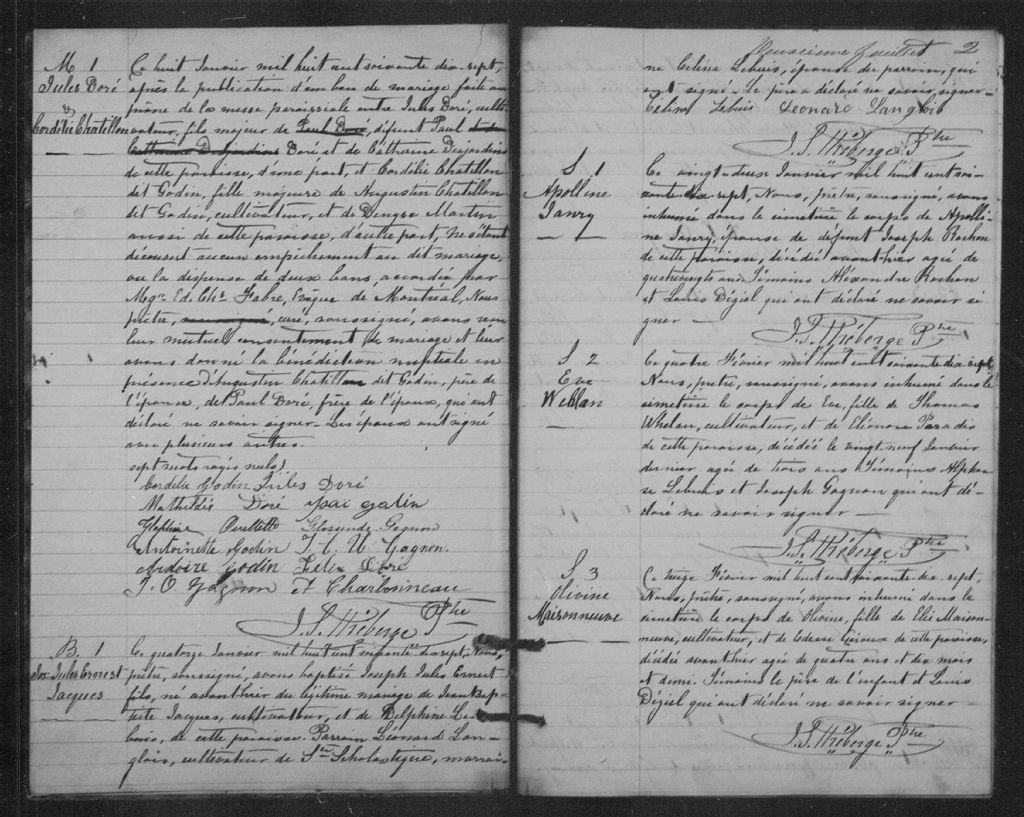 M 1
Jules Doré
&
Cordélie Chatillon
Ce huit Janvier mil huit cent soixante dix-sept,
après la publication d'un ban de mariage faite au
prône de la messe paroissiale entre Jules Doré, culti-
vateur, fils majeur de Paul Doré, défunt Paul
Catherine Desjardins Doré, et de Catherine Desjardins
de cette paroisse, d'une part, et Cordélie Chatillon
dit Godin, fille majeure de Augustin Chatillon
dit Godin, cultivateur, et de Denyse Martin
aussi de cette paroisse, d'autre part, ne s'étant
découvert aucun empêchement au dit mariage,
vu la dispense de deux bans, accordée par
Mgr. Ed. Chs. Fabre, Evêque de Montréal, Nous
prêtre, soussigné, curé, soussigné, avons reçu
leur mutuel consentement de mariage et leur
avons donné la bénédiction nuptiale en
présence d'Augustin Chatillon dit Godin, père de
l'épouse, de Paul Doré, frère de l'époux, qui ont
déclaré ne savoir signer. Les époux ont signé
avec plusieurs autres.
sept mots rayés nuls)
Cordélie Godin Jules Doré
Mathildé Doré
Ouellette Gagnon
Antoinette Godin J. E. U. Gagnon.
Godin Félix Doré
J. O. Gagnon F Charbonneau
J. S. Théberge Ptre
B. 1
Jos. Jules Ernest
Jacques
Ce quatorze Janvier mil huit cent soixante dix-sept, Nous,
prêtre, soussigné, avons baptisé Joseph Jules Ernest
fils, né avant hier du légitime mariage de Jean Bap-
tiste Jacques, cultivateur, et de Delphine Le-
buis, de cette paroisse. Parrain Léonard Lan-
glois, cultivateur de Ste Scholastique, marrai-
Deuxième feuillet 2
ne Célina Lebuis, épouse du parrain, qui
ont signé - Le père a déclaré ne savoir signer -
Célina Lebuis Leonard Langlois
J. S. Théberge Ptre
S. 1
Apolline
Janry
Ce vingt-deux Janvier mil huit cent soi-
xante dix sept, Nous, prêtre, soussigné, avons
inhumé dans le cimetière le corps de Apolli-
ne Janry, épouse de défunt Joseph Rochon
de cette paroisse, décédé avant hier agée de
quatrevingts ans. Témoins Aléxandre Rochon
et Louis Dégiel qui ont déclaré ne savoir si
gner -
J. S. Théberge Ptre
S 2
Eve
Wehlan
Ce quatre Février mil huit cent soixante dix sept,
Nous, prêtre, soussigné, avons inhumé dans le
cimetière le corps de Eve, fille de Thomas
Whelan, cultivateur, et de Eléonore Paradis
de cette paroisse, décédée le vingt neuf Janvier
dernier agée de trois ans Témoins Alphon-
se Lebuis et Joseph Gagnon qui ont dé-
claré ne savoir signer -
J. S. Théberge Ptre
S 3
Olivine
Maisonneuve
Ce treize Février mil huit cent soixante dix-sept,
Nous, prêtre, soussigné, avons inhumé dans le
cimetière le corps de Olivine, fille de Elie Maison-
neuve, cultivateur, et de Edesse Giroux de cette paroisse,
décédée avant hier agée de quatre ans et dix mois
et demi. Témoins le père de l'enfant et Louis
Dégiel qui ont déclaré ne savoir signer -
J. S. Théberge Ptre